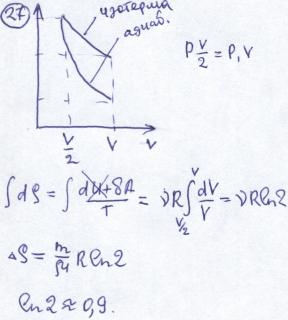 27
изотерма
адиаб.
P V/2 = P₁V
V/2 V V
∫dS = ∫ (dU+δA)/T = νR ∫_{V/2}^{V} dV/V = νR ln2
ΔS = m/μ R ln2
ln2 ≈ 0,9.